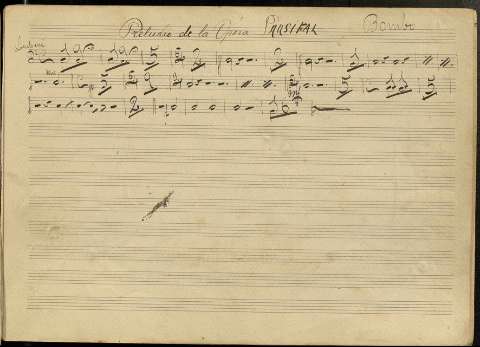 Preludio de la Opera PARSIFAL Bombo